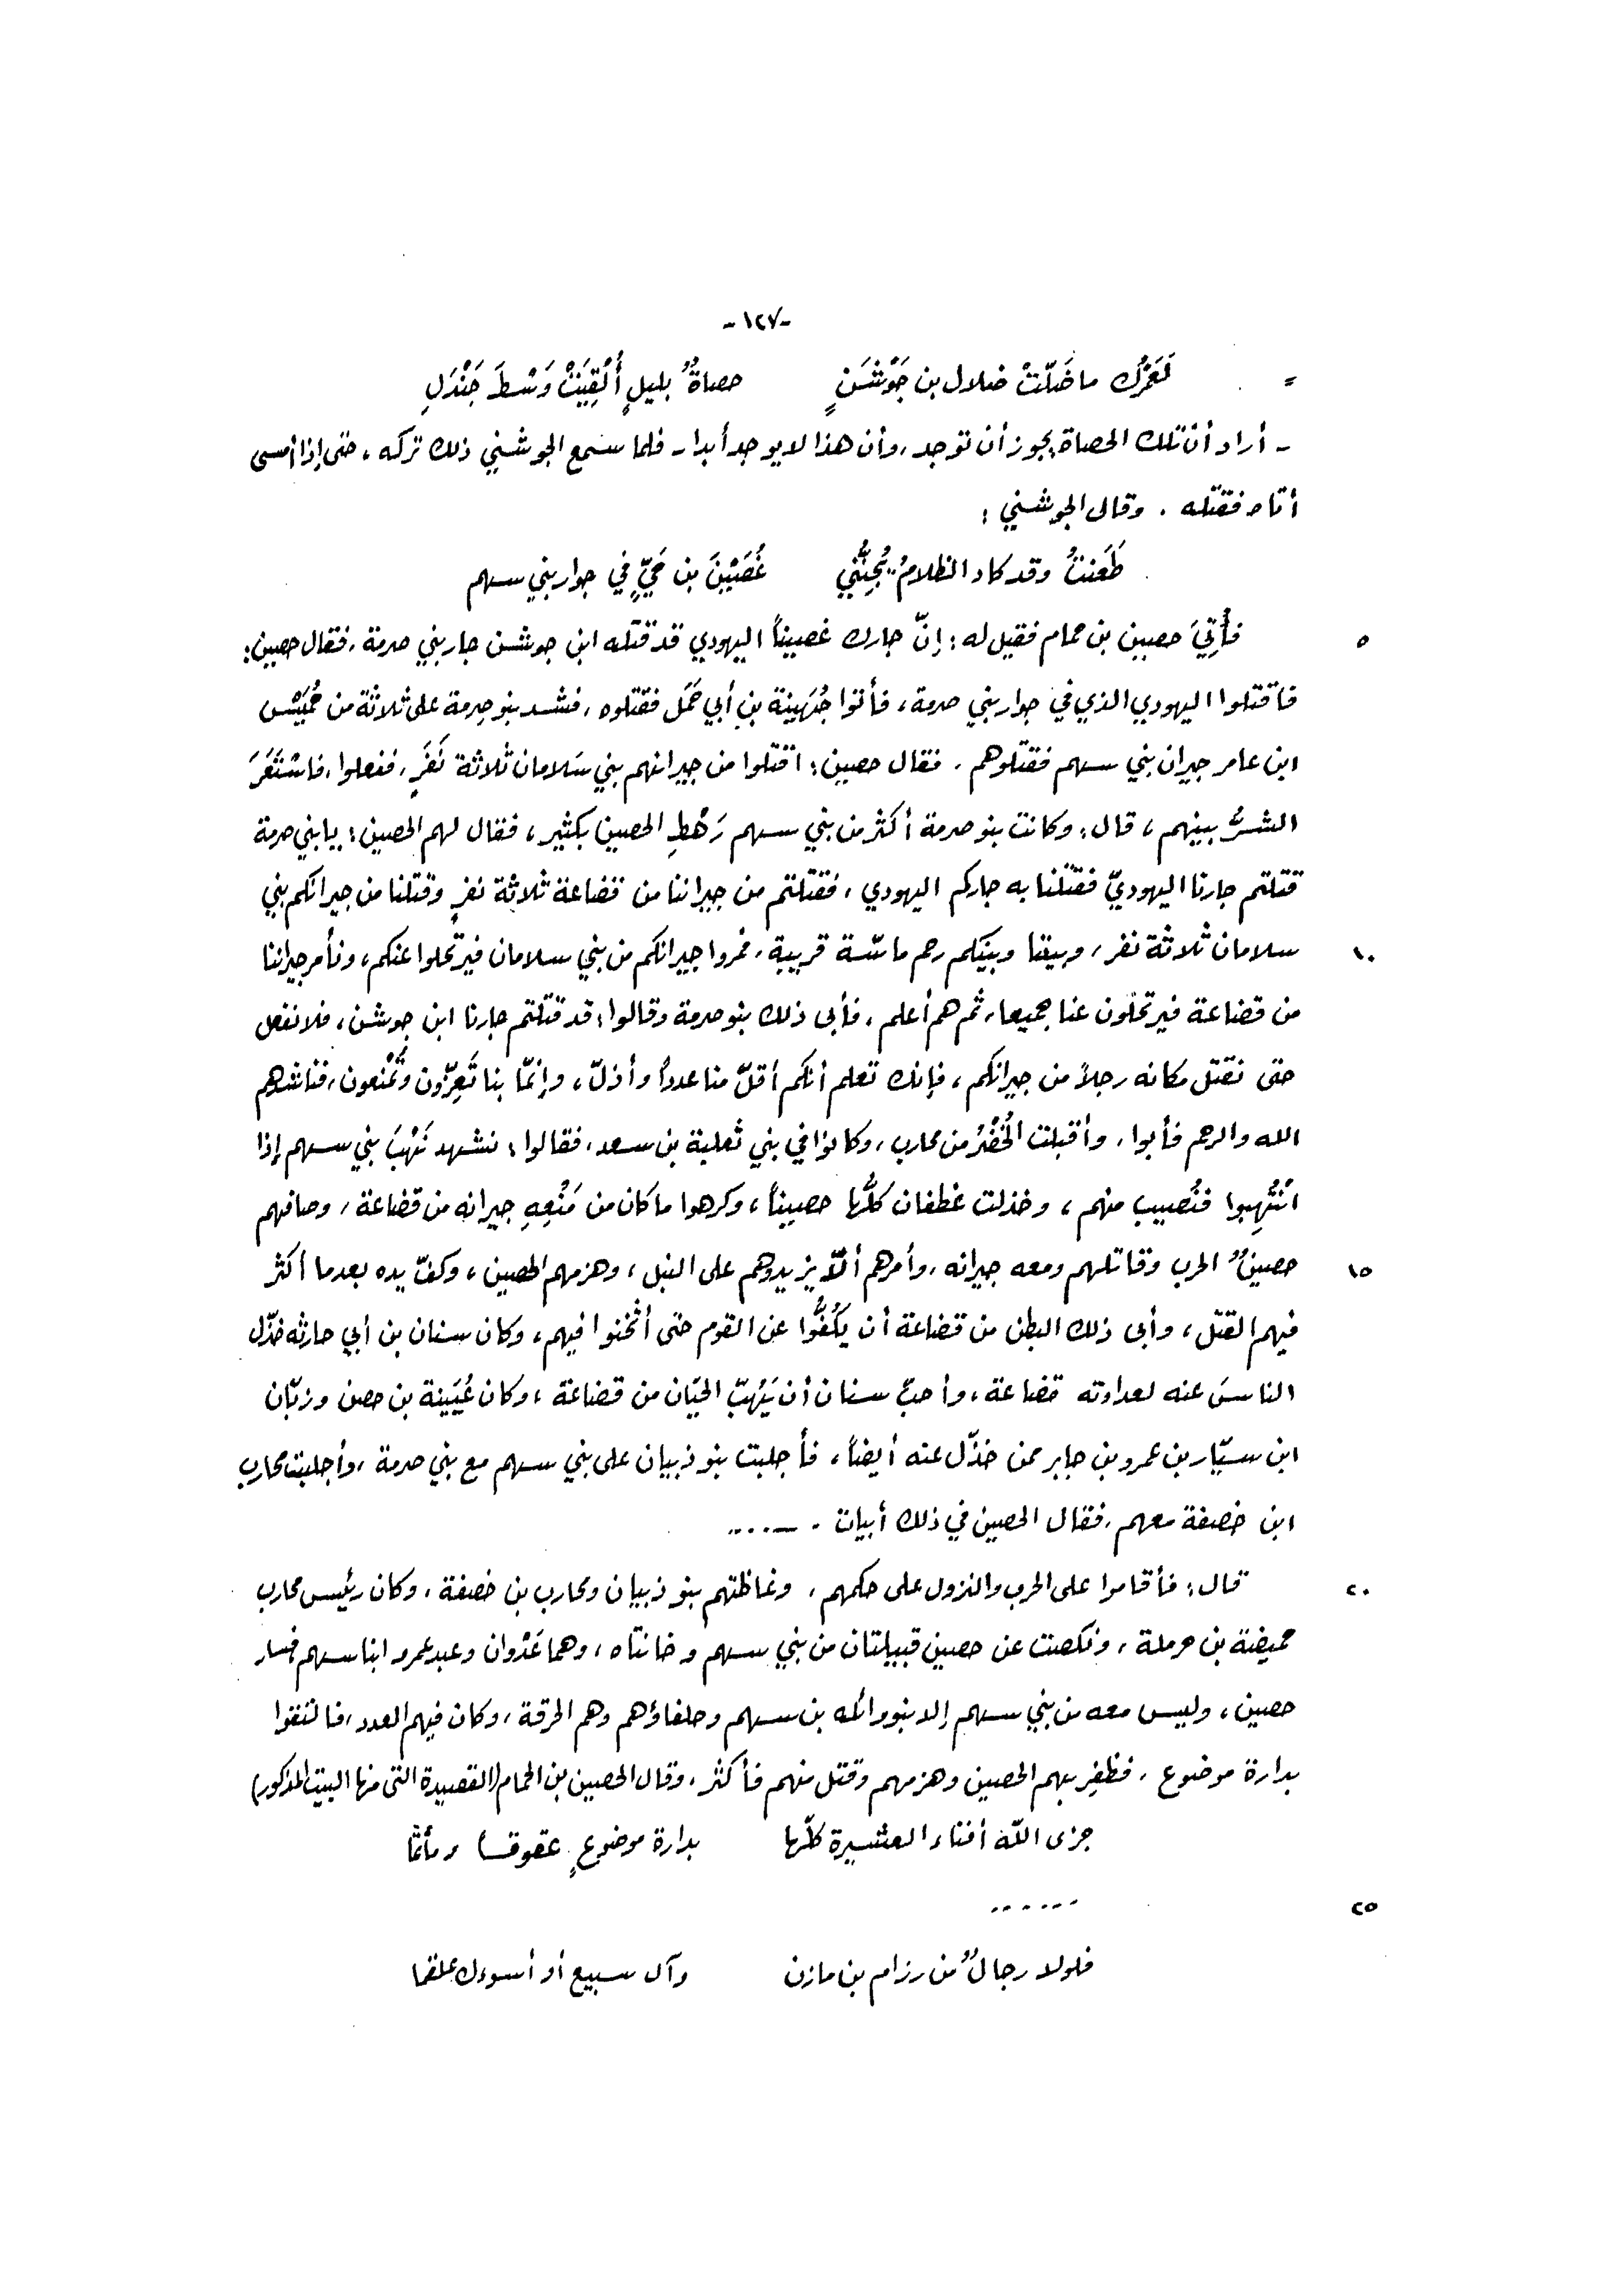 -١٢٧-
= لَعَمْرُك ما ضَلّتْ ضلال بن جَوْشَنٍ حصاةٌ بليلٍ أُلْقِيَتْ وَسْطَ جَنْدَلِ
- أراد أن تلك الحصاة يجوز أن توجد، وأن هذا لا يوجد أبدا - فلما سمع الجوشني ذلك تركه، حتى إذا أمسى
أتاه فقتله. وقال الجوشني:
طَعَنتُ وقد كاد الظلامُ يُجِنُّني غُصَيْنَ بن حَيٍّ في جوار بني سهم
٥ فأُتِيَ حصين بن حمام فقيل له: إنّ جارك غصيناً اليهودي قد قتله ابن جوشن جار بني صرمة، فقال حصين:
فاقتلوا اليهودي الذي في جوار بني صرمة، فأتوا جُهَينة بن أبي حَمَل فقتلوه، فشد بنو صِرمة على ثلاثة من حُمَيْس
ابن عامر جيران بني سهم فقتلوهم. فقال حصين: اقتلوا من جيرانهم بني سَلامان ثلاثة نَفَرٍ، ففعلوا، فاسْتَعَرَ
الشرُّ بينهم، قال: وكانت بنو صرمة أكثر من بني سهم رَهْطِ الحصين بكثير، فقال لهم الحصين: يا بني صرمة
قتلتم جارنا اليهوديّ فقتلنا به جاركم اليهودي، فقتلتم من جيراننا من قضاعة ثلاثة نفرٍ وقتلنا من جيرانكم بني
١٠ سلامان ثلاثة نفر، وبيننا وبينكم رحم ماسّة قريبة، فمروا جيرانكم من بني سلامان فيرتحلوا عنكم، ونأمر جيراننا
من قضاعة فيرتحلون عنا جميعا، ثم هم أعلم، فأبى ذلك بنو صرمة وقالوا: قد قتلتم جارنا ابن جوشن، فلا نفعل
حتى نقتل مكانه رجلاً من جيرانكم، فإنك تعلم أنكم أقلّ منا عدداً وأذلّ، وإنمّا بنا تَعِزّون وتُمْنعون، فناشدهم
الله والرحم فأبوا، وأقبلت الخُضْرُ من محارب، وكانوا في بني ثعلبة بن سعد، فقالوا: نشهد نَهْبَ بني سهم إذا
انْتُهِبوا فنُصيب منهم، وخذلت غطفان كلُّها حصيناً، وكرهوا ما كان من مَنْعِهِ جيرانه من قضاعة، وصافهم
١٥ حصينٌ الحرب وقاتلهم ومعه جيرانه، وأمرهم ألاّ يزيدوهم على النبل، وهزمهم الحصين، وكفّ يده بعدما أكثر
فيهم القتل، وأبى ذلك البطن من قضاعة أن يَكُفُّوا عن القوم حتى أثْخنوا فيهم، وكان سنان بن أبي حارثه خذّل
الناسَ عنه لعداوته قضاعة، وأحبّ سنان أن يَهُبّ الحيّان من قضاعة، وكان عُيَينة بن حصن وزبّان
ابن سيّار بن عمرو بن جابر ممن خذّل عنه أيضاً، فأجلبت بنو ذبيان على بني سهم مع بني صرمة، وأجلبت محارب
ابن خصفة معهم، فقال الحصين في ذلك أبيات. .....
٢٠ قال: فأقاموا على الحرب والنزول على حكمهم، وغاظتهم بنو ذبيان ومحارب بن خصفة، وكان رئيس محارب
حميضة بن حرملة، ونكصت عن حصين قبيلتان من بني سهم وخانتاه، وهما عَدْوان وعبد عمرو ابنا سهم فسار
حصين، وليس معه من بني سهم إلا بنو وائله بن سهم وحلفاؤهم وهم الحرقة، وكان فيهم العدد، فالتقوا
بدارة موضوع، فظفر بهم الحصين وهزمهم وقتل منهم فأكثر، وقال الحصين بن الحمام (القصيدة التي منها البيت المذكور)
جزى الله أفناء العشيرة كلّها بدارة موضوعٍ عقوقاً ومأثما
٢٥ ......
فلولا رجالٌ من رزام بن مازن وآل سبيع أو أسوءك علقما